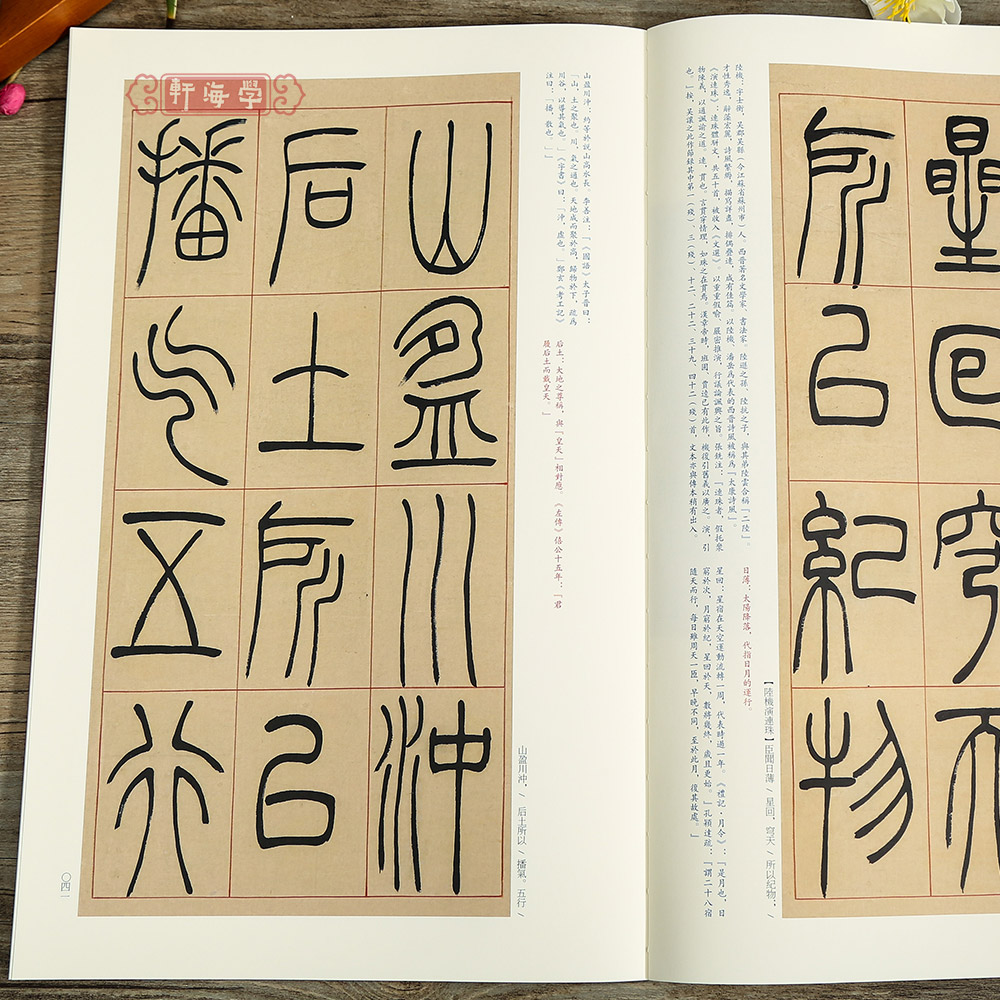 軒海學
星回穹天
所以紀物
陸機：字士衡，吳郡吳縣（今江蘇省蘇州市）人。西晉著名文學家、書法家。陸遜之孫、陸抗之子，與其弟陸雲合稱「二陸」。
才性秀逸，辭藻宏麗，詩風繁縟，描寫詳盡，排偶疊運，咸有佳篇。以陸機、潘岳爲代表的西晉詩風被稱爲「太康詩風」。
《演連珠》：連珠體駢文，共五十首，被收入《文選》。以重重假喻、嚴密推演，行議論諷興之旨。張銑注：「連珠者，假托衆
物陳義，以通諷諭之道。連，貫也。言貫穿情理，如珠之在貫焉。漢章帝時，班固、賈逵已有此作，機復引舊義以廣之。演，引
也。」按，吳讓之此作節錄其中第一（殘）、三（殘）、十二、二十二、三十九、四十二（殘）首，文本亦與傳本稍有出入。
日薄：太陽降落，代指日月的運行。
星回：星宿在天空運動流轉一周，代表時過一年。《禮記·月令》：「是月也，日
窮於次，月窮於紀，星回於天，數將幾終，歲且更始。」孔穎達疏：「謂二十八宿
隨天而行，每日雖周天一匝，早晚不同，至於此月，復其故處。」
【陸機演連珠】臣聞日薄／星回，穹天／所以紀物；／
山盈川沖
后土所以
播氣五行
山盈川沖：約等於說山高水長。李善注：「《國語》太子晉曰：
『山，土之聚也。川，氣之通也。天地成而聚於高，歸物於下，疏爲
川谷，以導其氣也。』《字書》曰：『沖，虛也。』鄭玄《考工記》
注曰：『播，散也。』」
后土：大地之尊稱，與「皇天」相對應。《左傳》僖公十五年：「君
履后土而戴皇天。」
山盈川沖，／后土所以／播氣。五行／
〇四一